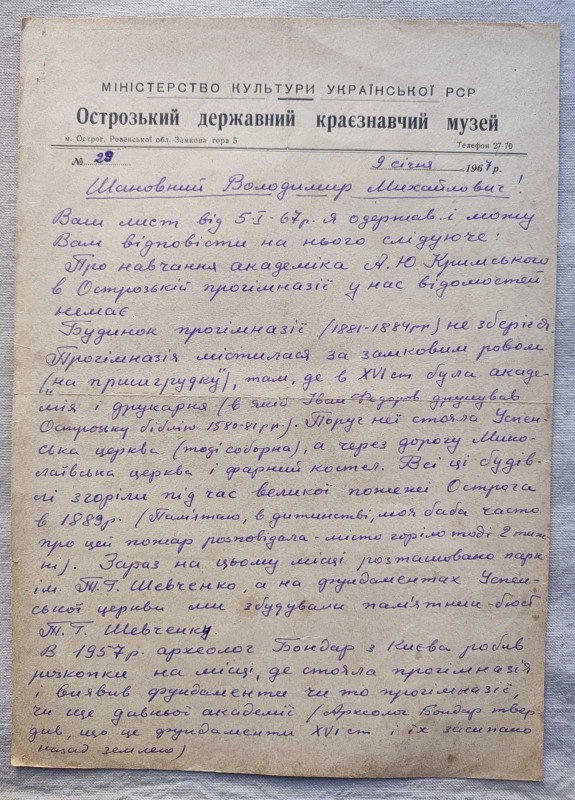 МІНІСТЕРСТВО КУЛЬТУРИ УКРАЇНСЬКОЇ РСР
Острозький державний краєзнавчий музей
м. Острог, Ровенської обл. Замкова гора 5 Телефон 27-70
№ 29 9 січня 1967 р.
Шановний Володимир Михайлович!
Ваш лист від 5-I-67р. я одержав і можу
Вам відповісти на нього слідуюче:
Про навчання академіка А.Ю Кримського
в Острозькій прогімназії у нас відомостей
немає.
Будинок прогімназії (1881-1884рр) не зберігся.
Прогімназія містилася за замковим ровом
("на пригрудку"), там, де в XVIст була акаде-
мія і друкарня (в якій Іван Федоров друкував
Острозьку біблію 1580-81рр.). Поруч неї стояла Успен-
ська церква (тоді соборна), а через дорогу Мико-
лаївська церква і фарний костел. Всі ці будів-
лі згоріли під час великої пожежі Острога
в 1889р. (Пам'ятаю, в дитинстві, моя баба часто
про цей пожар розповідала - місто горіло тоді 2 тиж-
ні). Зараз на цьому місці розташовано парк
ім. Т.Г. Шевченко, а на фундаментах Успен-
ської церкви ми збудували пам'ятник-бюст
Т.Г. Шевченку.
В 1957р. археолог Бондар з Києва робив
розкопки на місці, де стояла прогімназія
і виявив фундаменти чи то прогімназії,
чи ще давньої академії (Археолог Бондар твер-
див, що це фундаменти XVIст і їх засипано
назад землею)